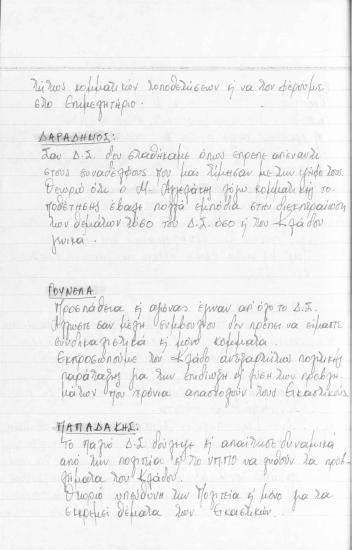 τήτως κομματικών τοποθετήσεων ή να τον φέρουμε
στο Επιμελητήριο.
ΔΑΡΑΔΗΜΟΣ:
Σαν Δ.Σ. δεν σταθήκαμε όπως έπρεπε απέναντι
στους συναδέλφους που μας τίμησαν με την ψήφο τους.
Θεωρώ ότι ο Μ. Αγγελάκης λόγω κομματικής το-
ποθέτησης έβαλε πολλά εμπόδια στην διεκπεραίωση
των θεμάτων τόσο του Δ.Σ. όσο ή του Κλάδου
γενικά.
ΓΟΥΝΕΛΑ
Προσπάθεια ή αγώνας έγιναν απ' όλο το Δ.Σ.
σαν μέλη δεν πρέπει να είμαστε
συνδικαλιστικά ή μόνο κόμματα.
Εκπροσωπούμε τον Κλάδο ανεξαρτήτως πολιτικής
παράταξης για την επιδίωξη ή λύση των προβλη-
μάτων που χρόνια απασχολούν τους Εικαστικούς.
ΠΑΠΑΔΑΚΗΣ:
Το παλιό Δ.Σ δούλεψε ή απαίτησε δυναμικά
από την πολιτεία ή το ΥΠ.ΠΟ να λυθούν τα προβ-
λήματα του Κλάδου.
Θεωρώ υπεύθυνη την Πολιτεία ή μόνο για τα
εκκρεμή θέματα των Εικαστικών.